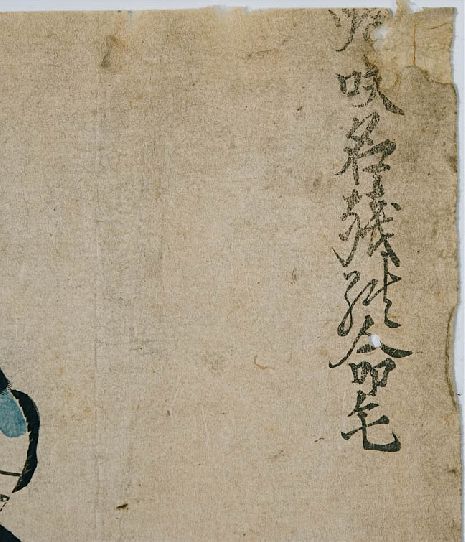 咲名残命毛